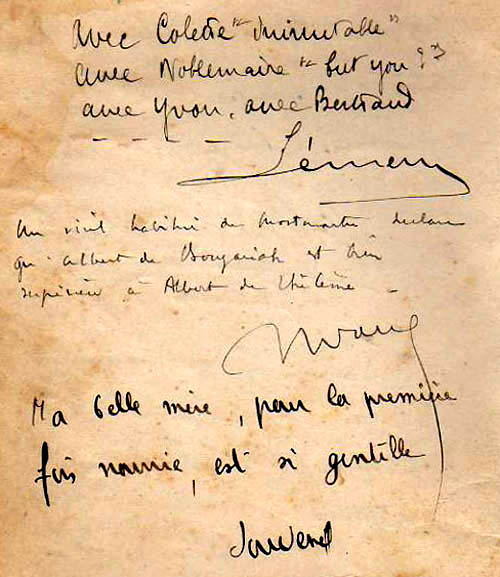 avec Colette "Inimitable"
avec Noblemaire "but you?"
avec Yvon, avec Bertrand
Un vieil habitué de Montmartre declare
qu'Albert de Bougariah est bien
supérieur à Albert de Thélème
Ma belle mère, pour la première
fois nommée, est si gentille
Jouvenel